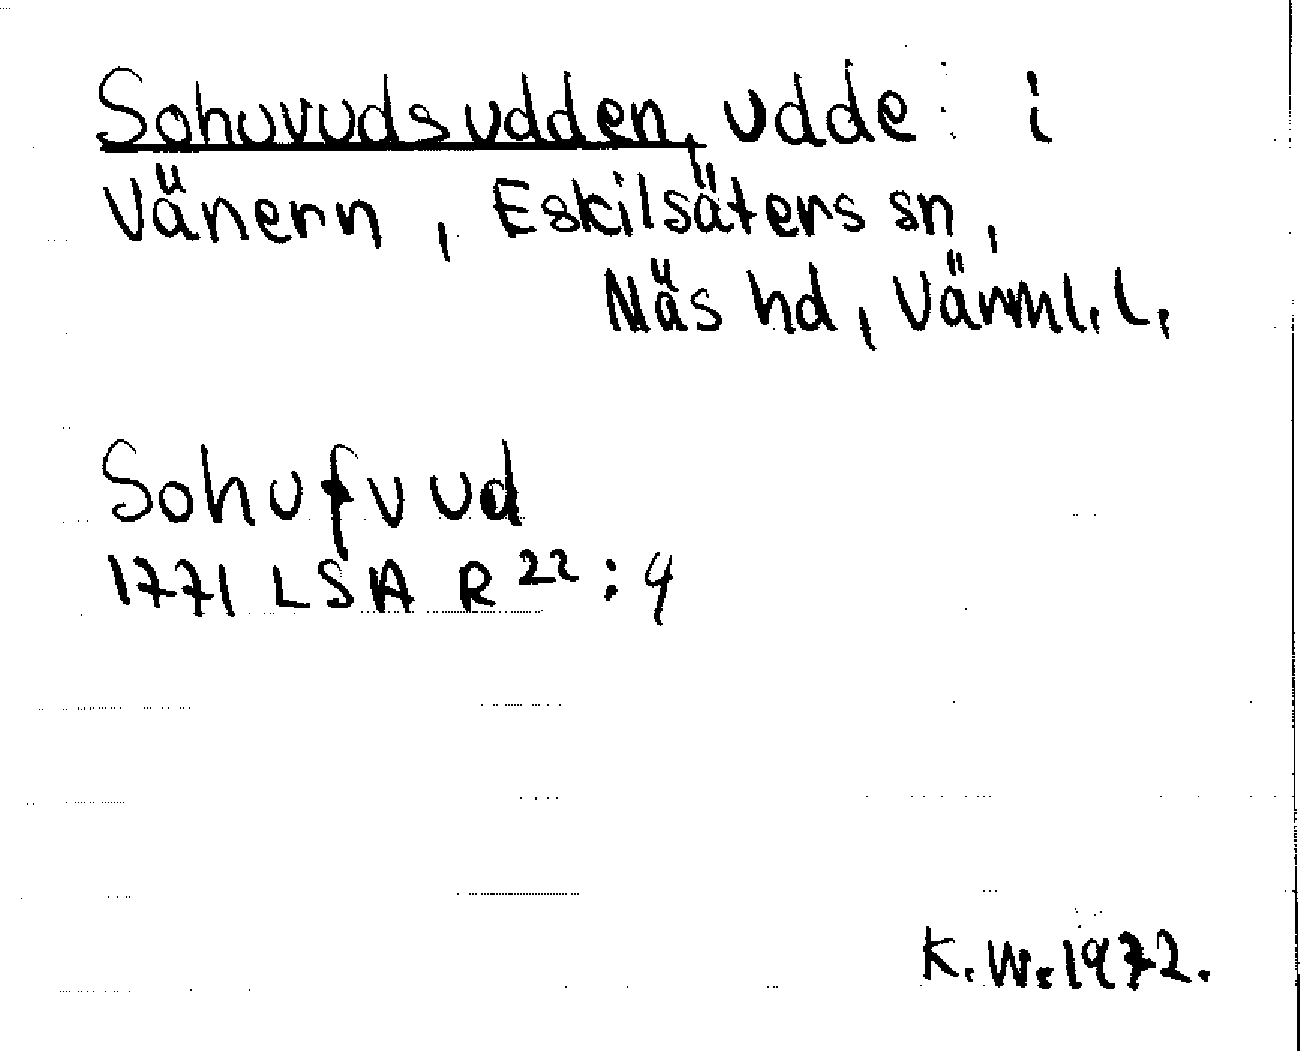 Sohuvudsudden, udde i
Vänern, Eskilsäters sn,
Näs hd, Värml. l.
Sohufvud
1771 LSA R 22:9
K.W. 1972.